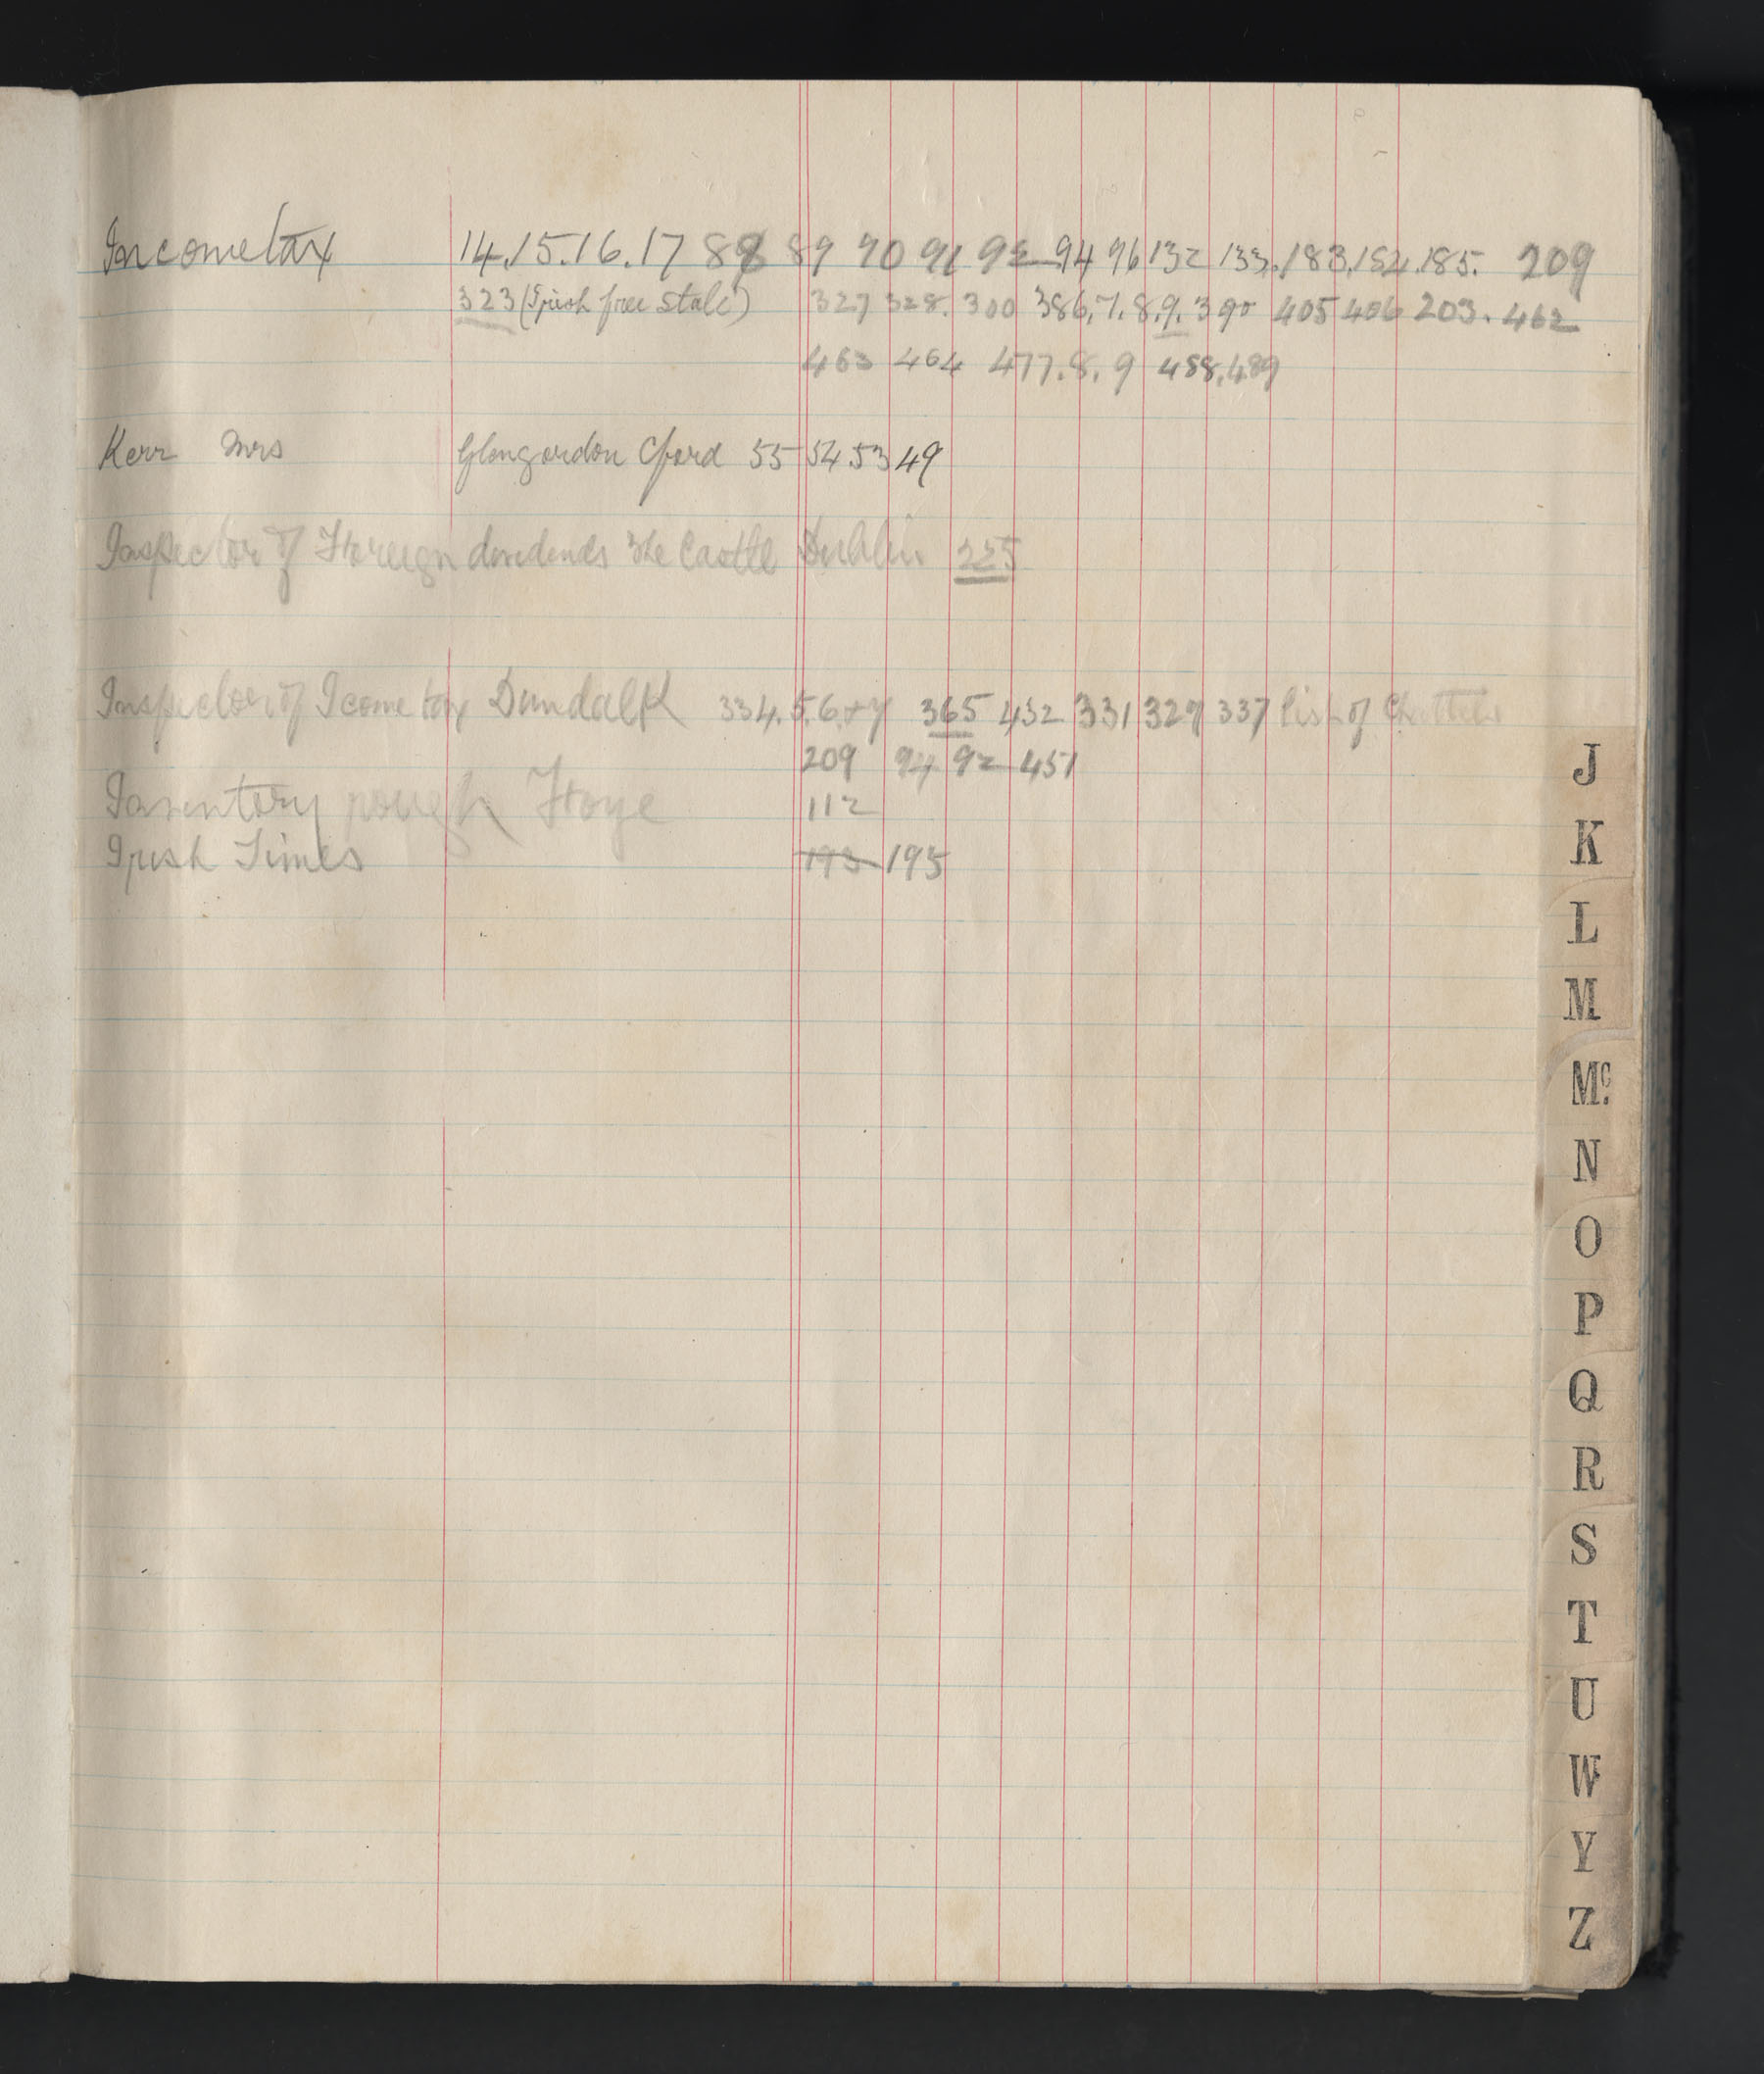 Incometax 14.15.16.17 88 89 90 91 92 94 96 132 133.183.184.185. 209
323 (Irish free State) 327 328. 300 386.7.8.9.390 405 406 203. 462
463 464 477.8.9 488.489
Kerr Mrs Glengordon Cford 55 54 53 49
Inspector of Foreign dividends The Castle Dublin 225
Inspector of Icome tax Dundalk 334.5.6.+7 365 432 331 327 337 list of Chattels
209 94 92 451
Inventory rough Hoye 112
Irish Times 193 195
J
K
L
M
Mc.
N
O
P
Q
R
S
T
U
W
Y
Z